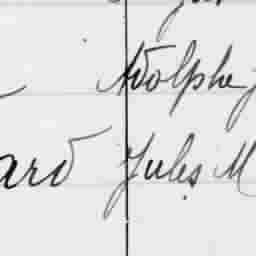 Adolphe J
ard Jules M